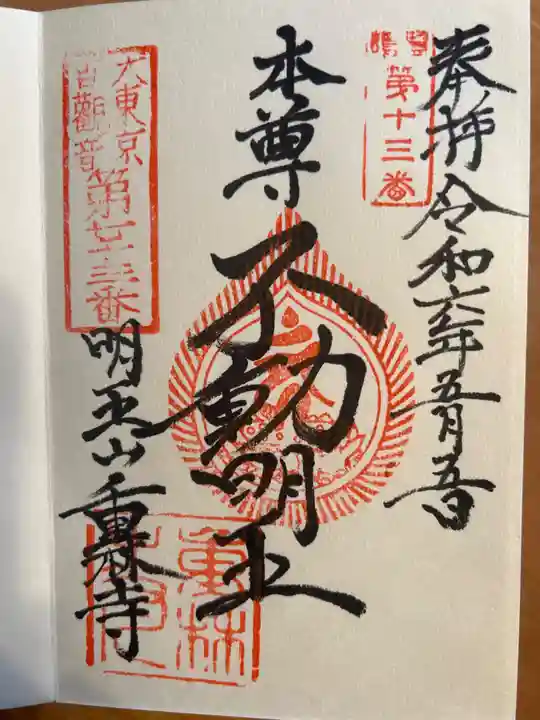 奉拝 令和六年五月五日
豊嶋
第十三番
本尊
不動明王
大東京
百觀音
第廿三番
明王山 重林寺
重林